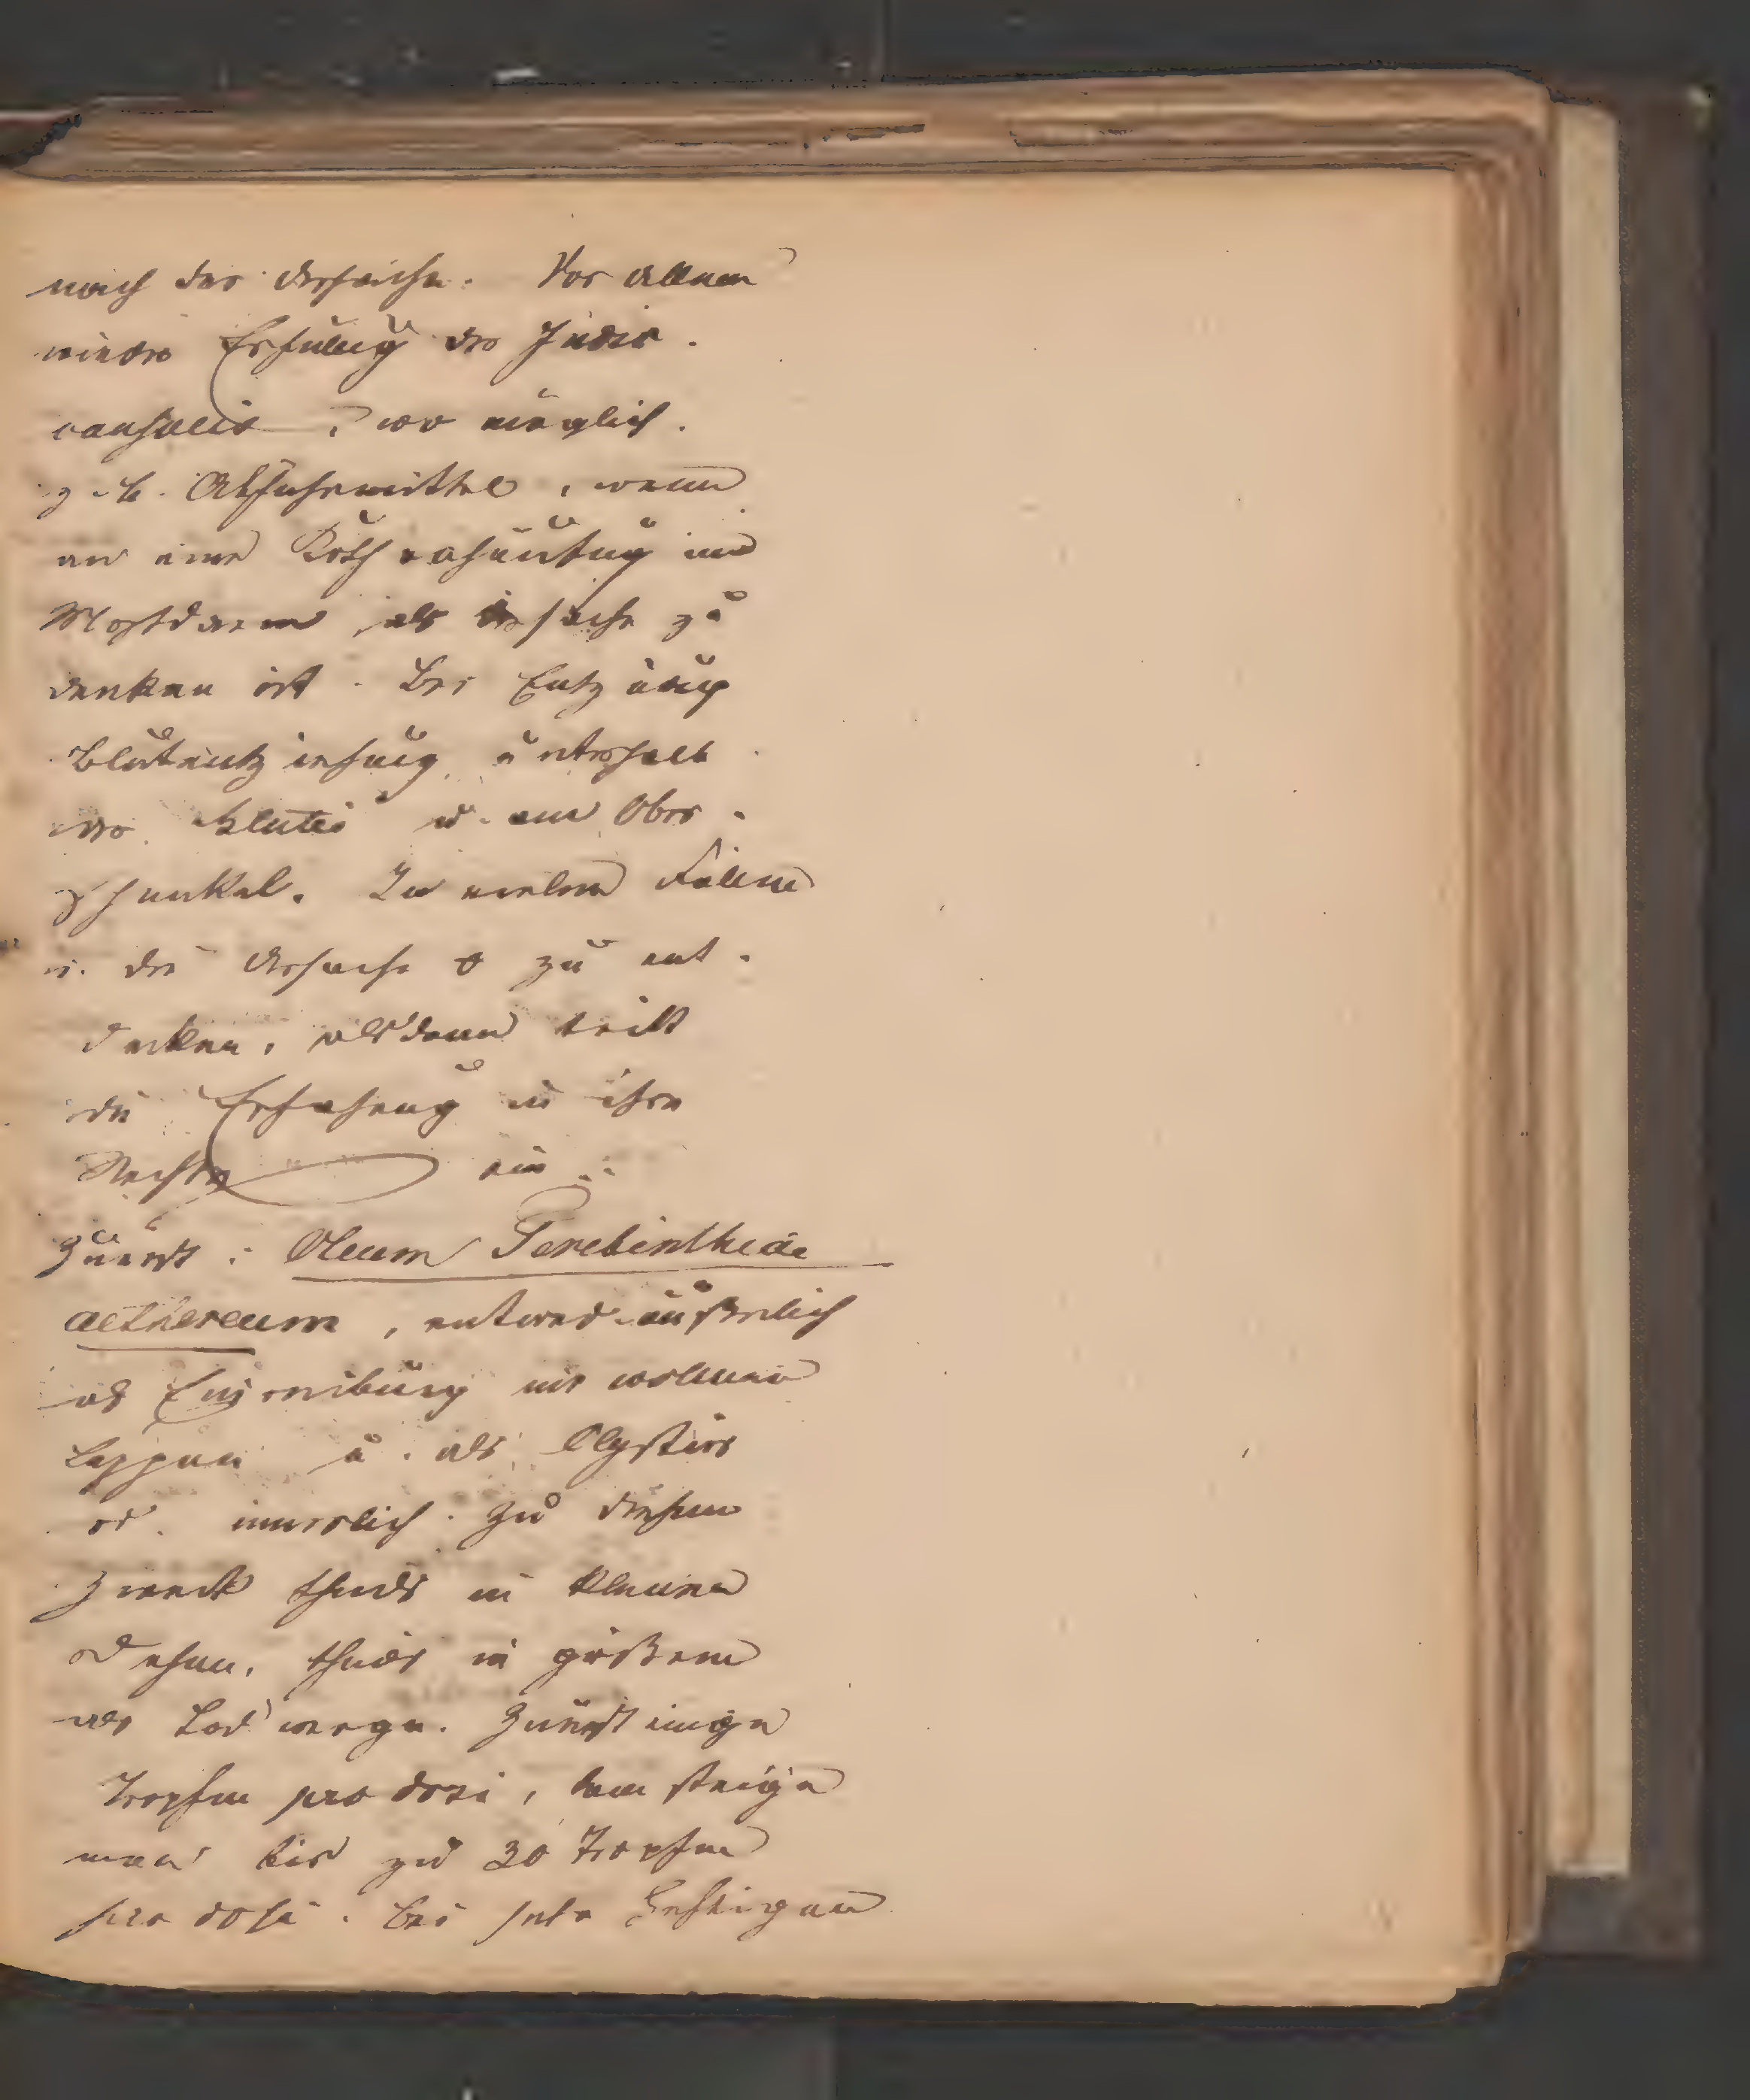 nach der Ursache. Vor allem
wieder Erfüllug der Indic.
causalis, wo möglich.
z. B. Abführmittel, wenn
an eine Kothanhäufug im
Mastdarm als Ursache zu
denken ist. Bei Entzüdug
Blutentziehung, unterhalb
der Glutei u. am Ober-
schenkel. In vielen Fällen
i. die Ursache 0 zu ent-
decken, alsdann tritt
die Erfahrung in ihre
Rechte ein:
Zuerst: Oleum Terebinthinae
aethereum, entwed. äußerlich
als Einreibung mit wollenen
Lappen u. als Clystier
od. innerlich. Zu diesem
Zweck theils in kleinen
Dosen, theils in größern
als Latwerge. Zuerst einige
Tropfen pro dosi, dann steige
man bis zu 30 Tropfen
pro dosi. Bei sehr heftigen